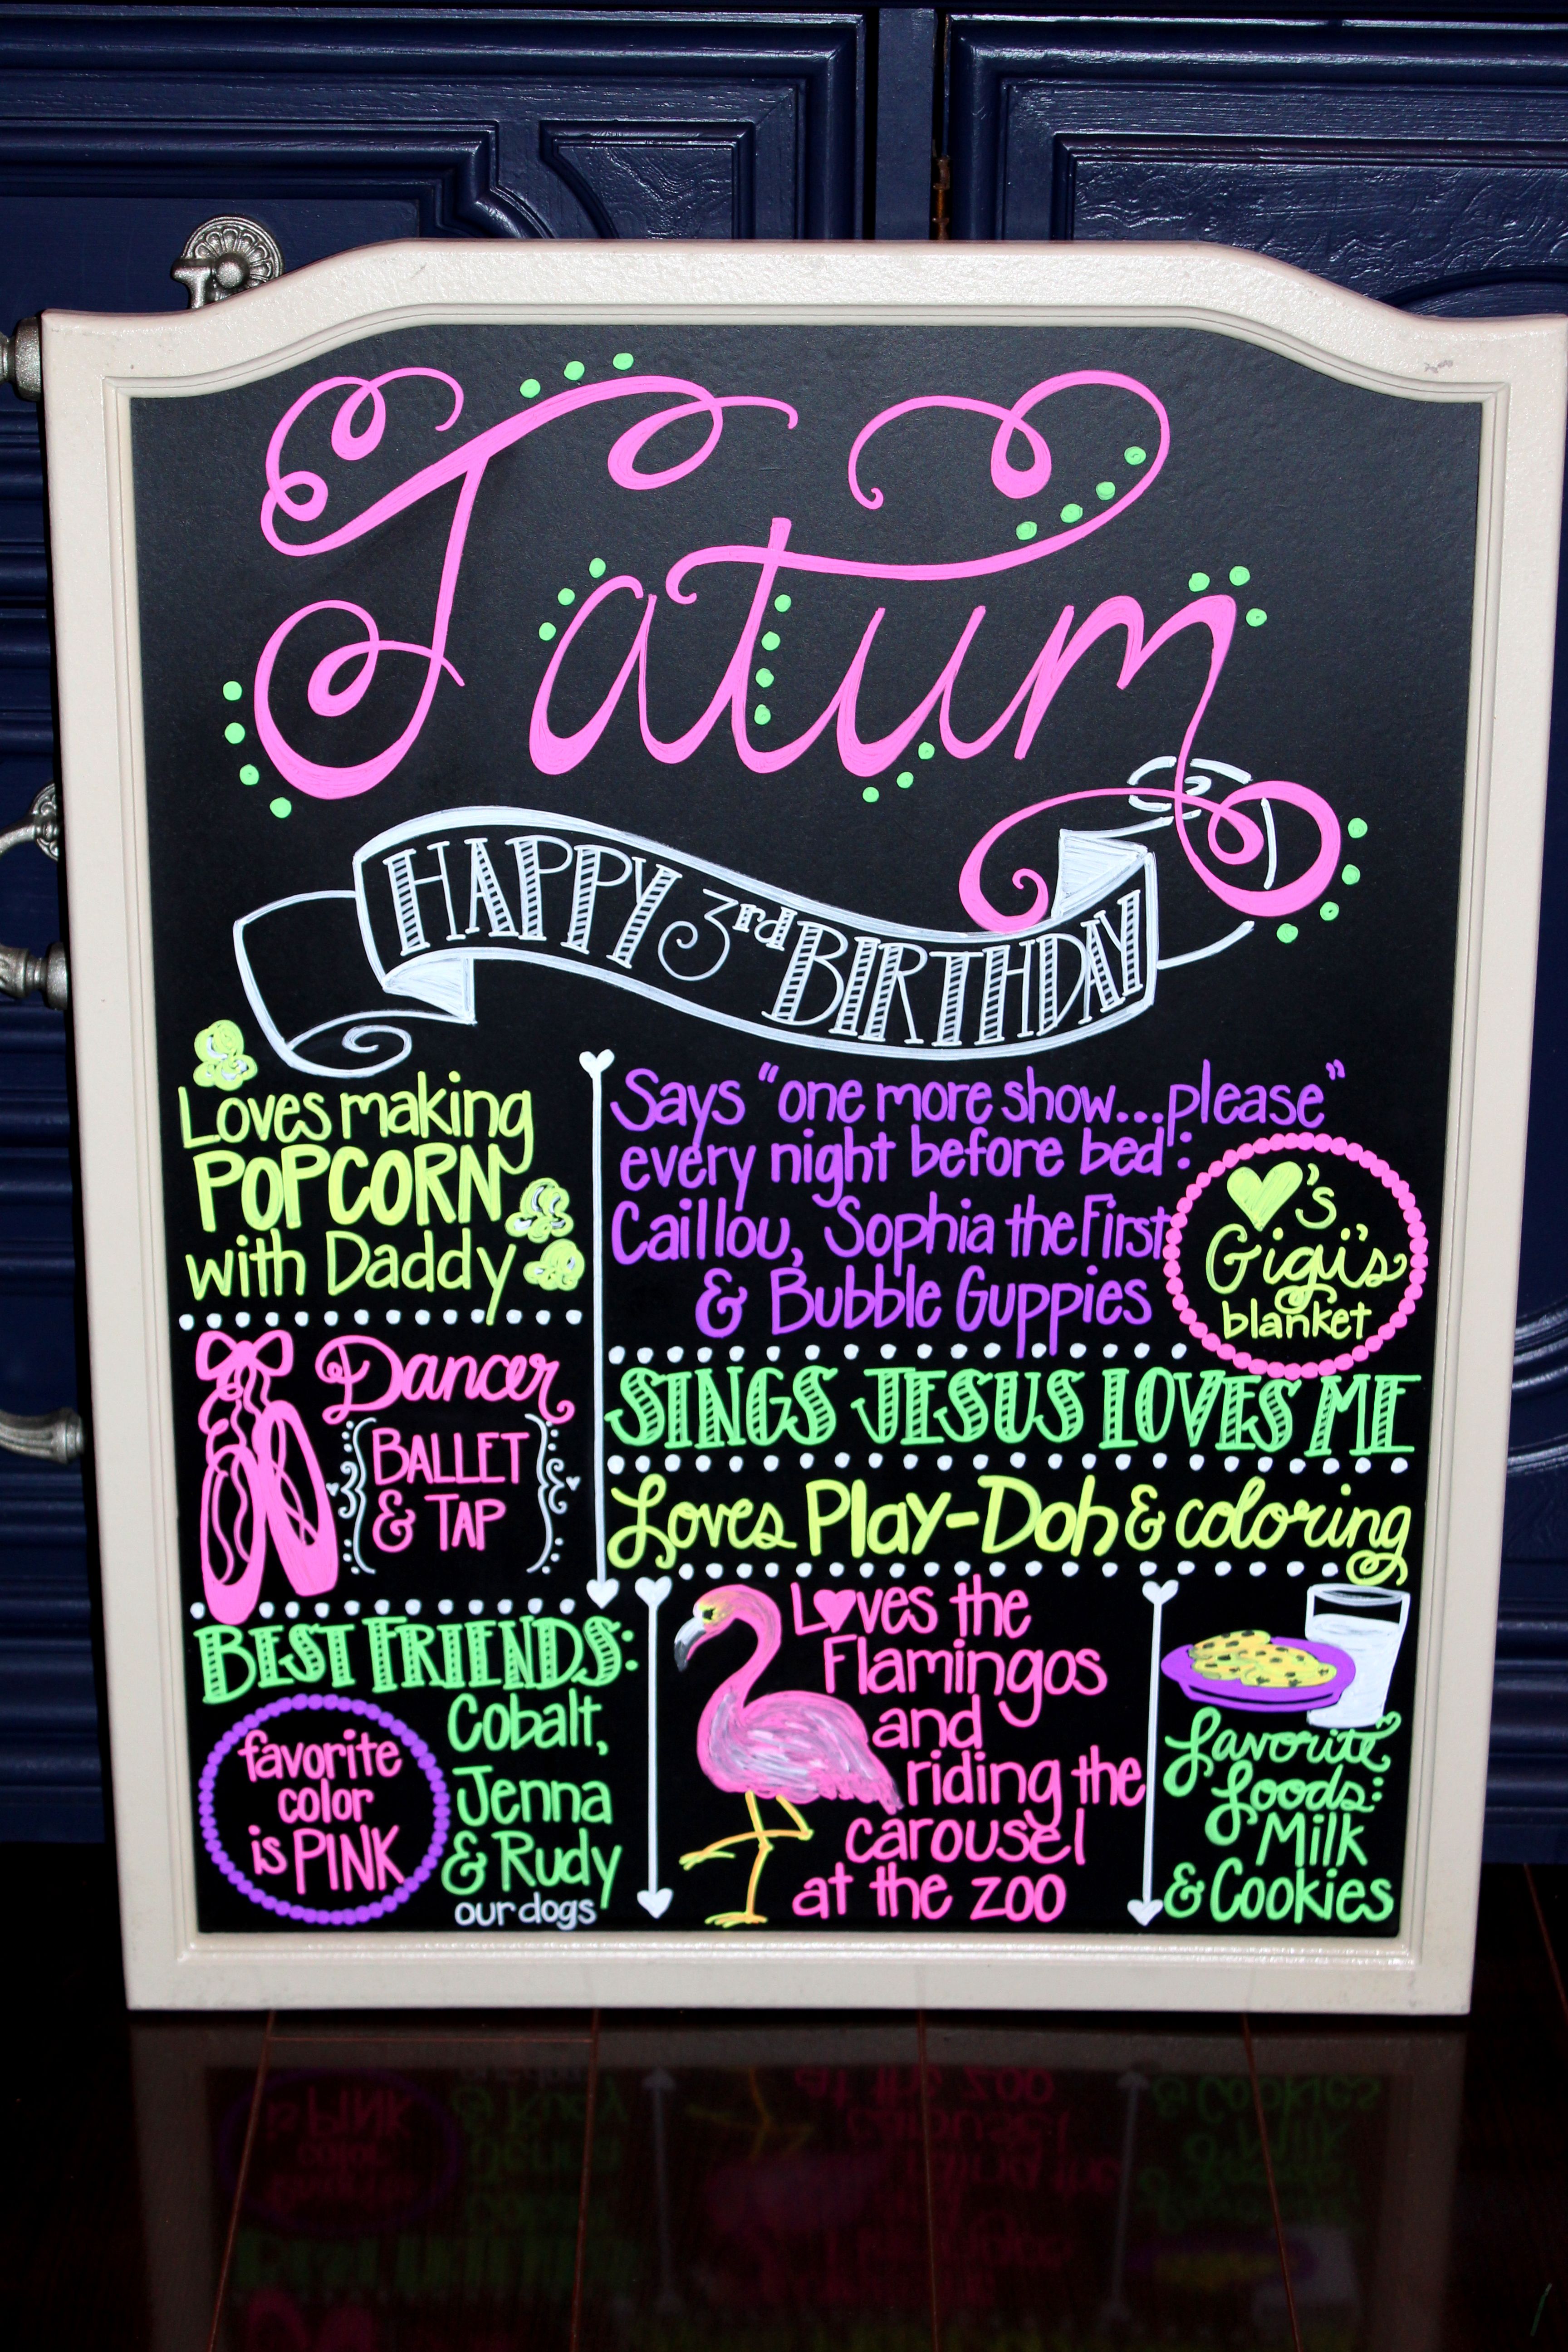 Tatum
HAPPY 3rd BIRTHDAY
Loves making
POPCORN
with Daddy
Says "one more show...please"
every night before bed:
Caillou, Sophia the First
& Bubble Guppies
♥'s
Gigi's
blanket
Dancer
BALLET
& TAP
SINGS JESUS LOVES ME
Loves Play-Doh & coloring
BEST FRIENDS:
Cobalt,
Jenna
& Rudy
our dogs
favorite
color
is PINK
L♥ves the
Flamingos
and
riding the
carousel
at the zoo
favorite
foods:
Milk
& Cookies